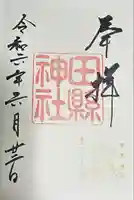 奉拝
田縣神社
令和六年六月廿二日